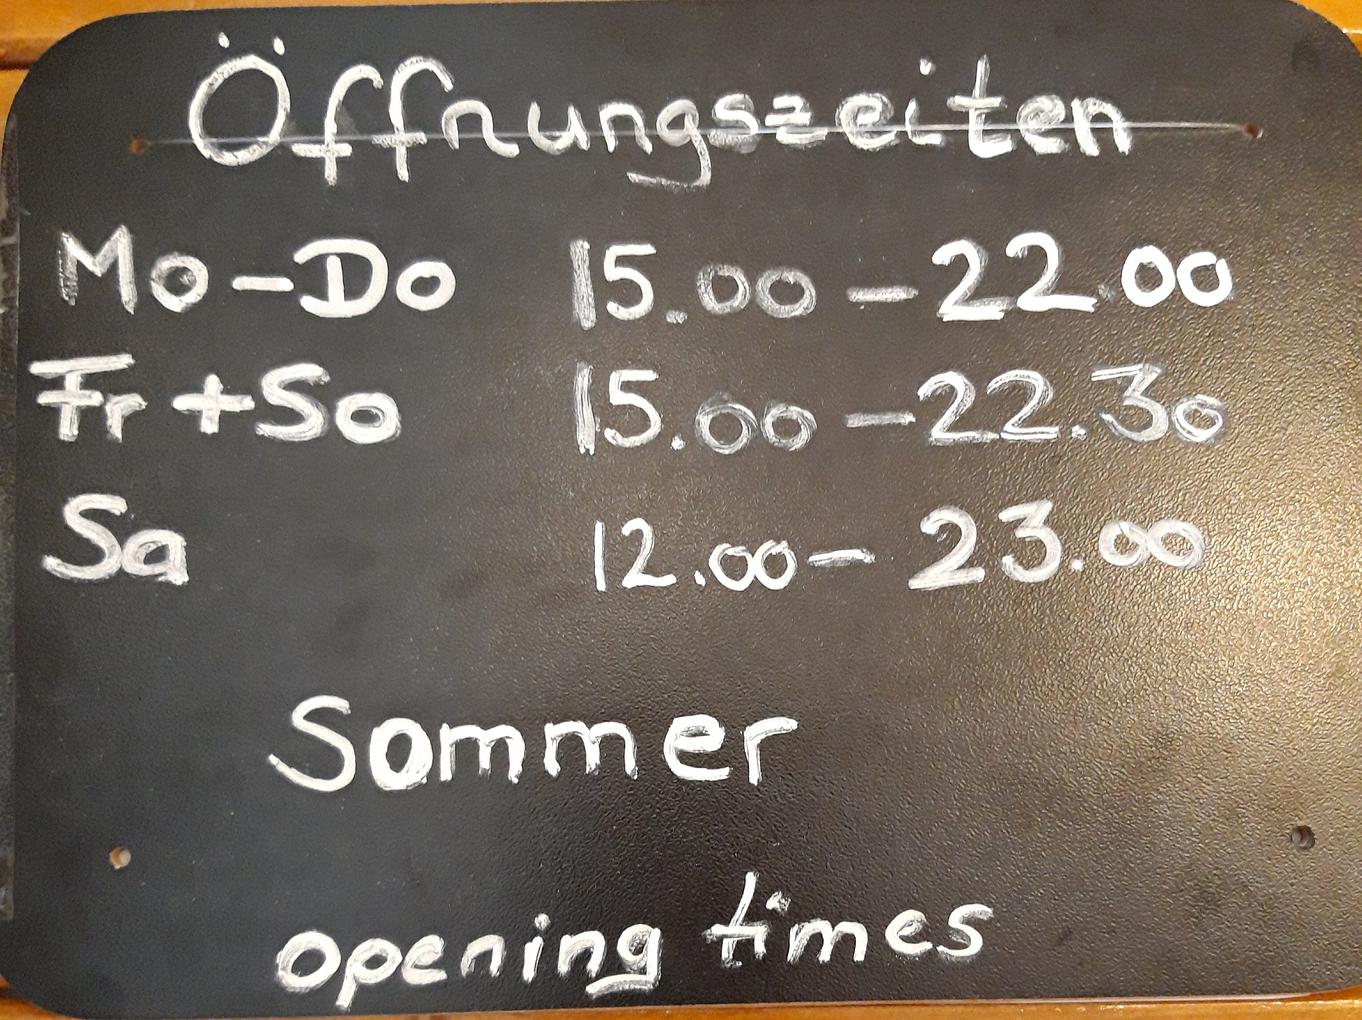 Öffnungszeiten
Mo-Do 15.00-22.00
Fr+So 15.00-22.30
Sa 12.00-23.00
Sommer
opening times